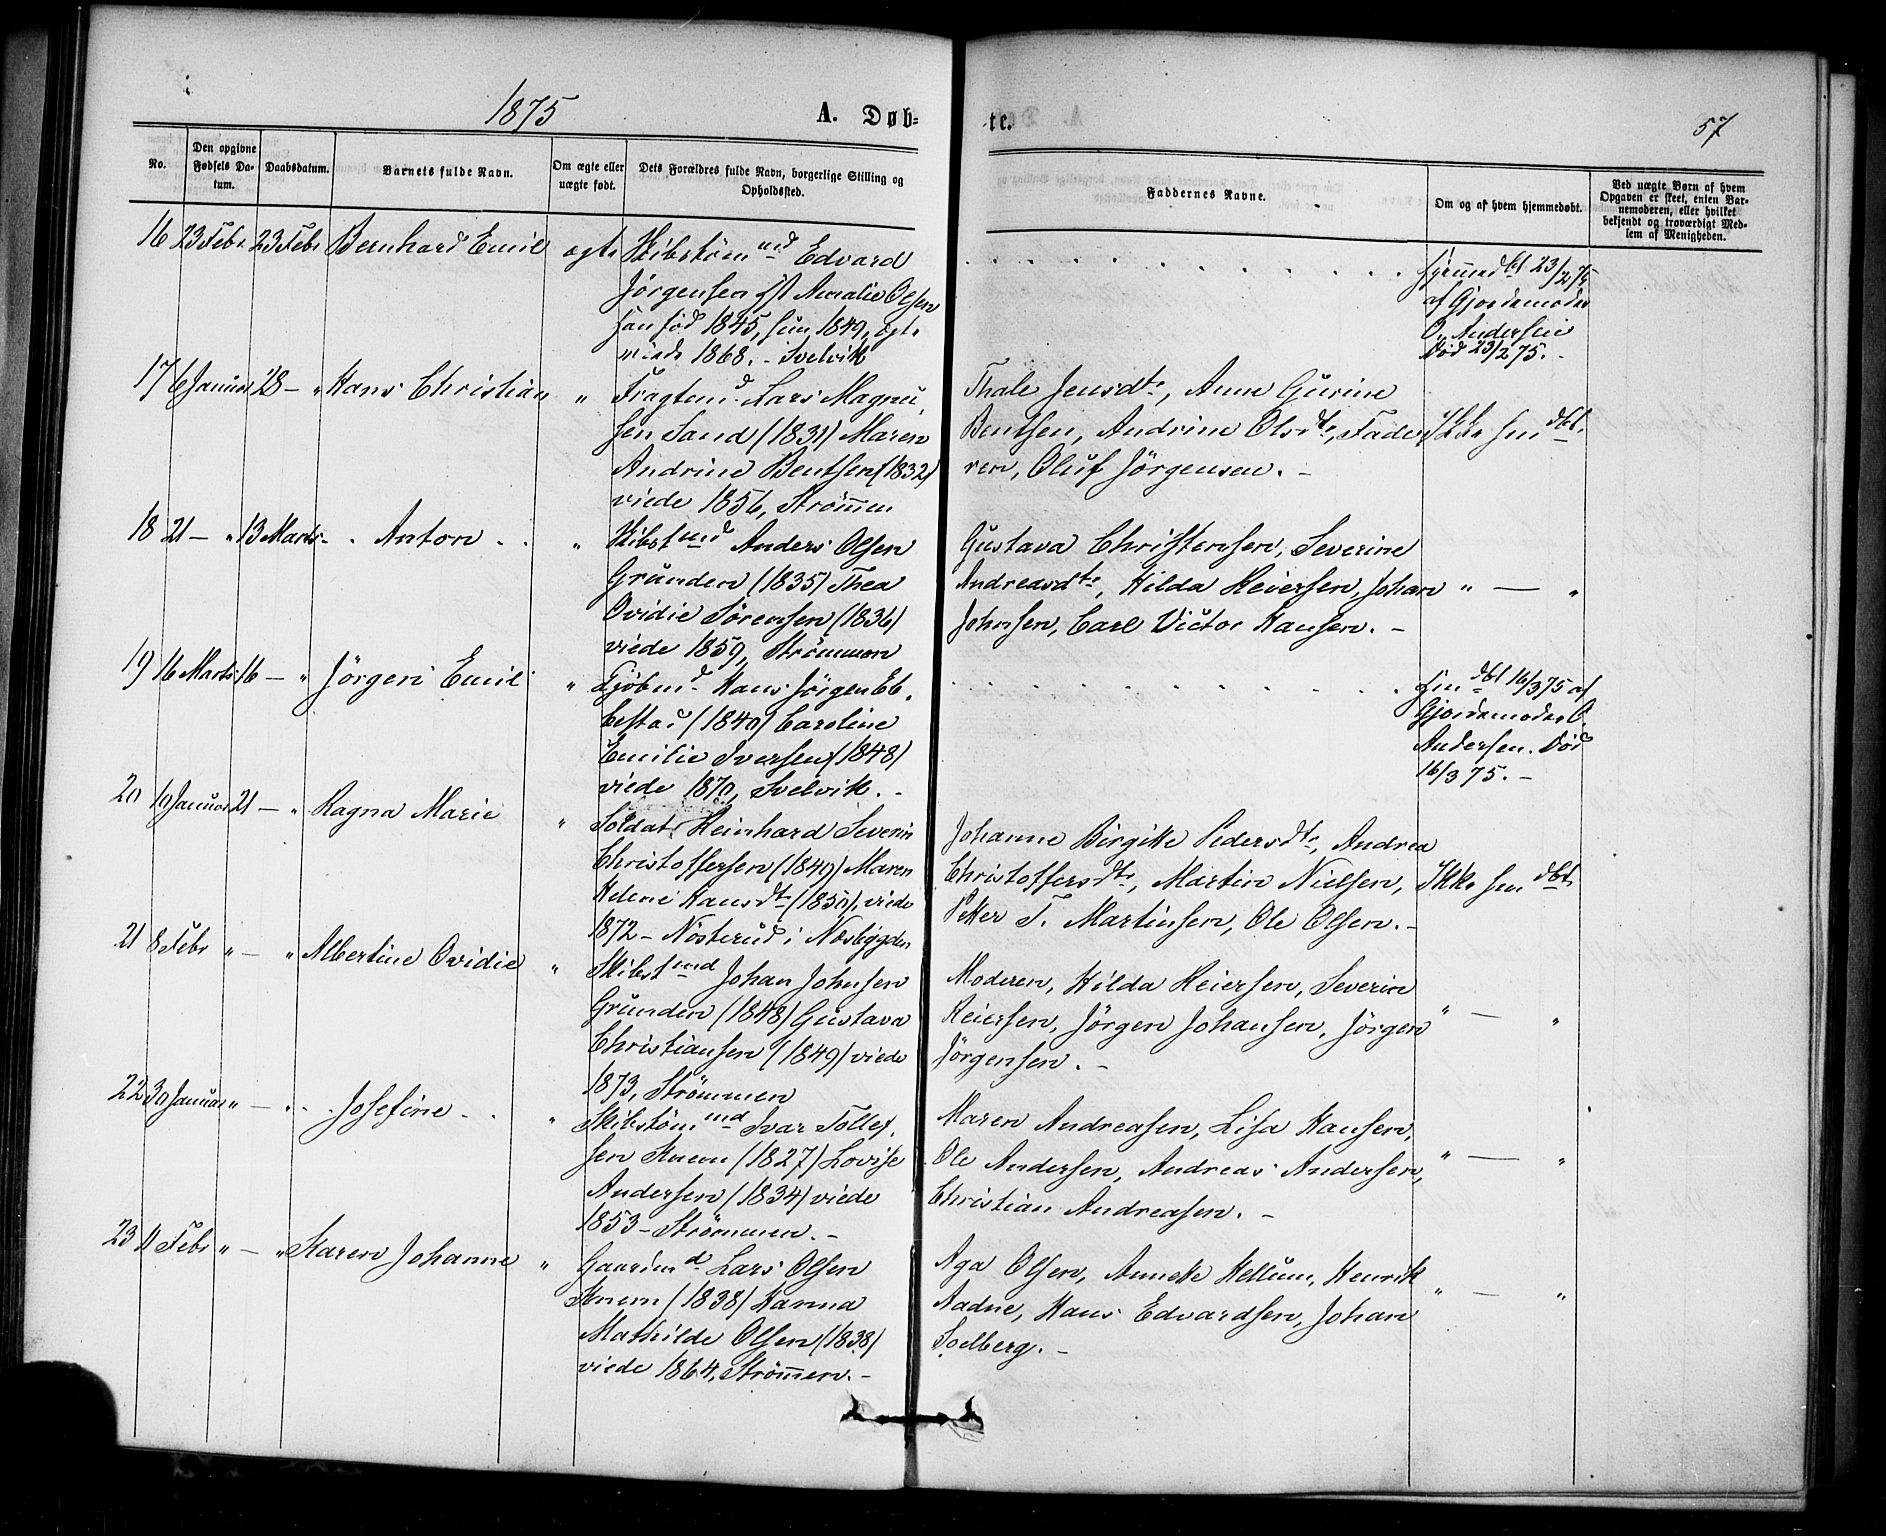 1875
A. Døb-
te.
57
No.
Den opgivne Fødsels Da-
tum.
Daabsdatum.
Barnets fulde Navn.
Om ægte eller uægte født.
Dets Forældres fulde Navn, borgerlige Stilling og
Opholdssted.
Faddernes Navne.
Om og af hvem hjemmedøbt.
Ved uægte Børn af hvem
Opgaven er skeet, enten Bar-
nemoderen, eller hvilket
bekjendt og troværdigt Med-
lem af Menigheden.
16 23 Febr 23 Febr Bernhard Emil ægte Skibstømmd Edvard
Jörgensen og Amalie Olsen
han fød 1845, hun 1849, ægte
viede 1868. - Svelvik
hjemmedbt 23/2 75
af Gjordemoder
O. Andersen
Död 23/2 75. -
17 6 Januar 28 — " Hans Christian " Fragtemd Lars Magnu,
sen Sand (1831) Maren
Andrine Bentsen (1832)
viede 1856, Strømmen
Thale Jensdtr, Anne Gurine
Bentsen, Andrine Olsdtr, Fade,
ren, Oluf Jörgensen. -
Ikke hmdbt.
18 21 — " 13 Marts - Anton - " Skibstmd Anders Olsen
Grunden (1835) Thea
Ovidie Sörensen (1836)
viede 1859, Strømmen
Gustava Christensen, Severine
Andreasdtr, Hilda Reiersen, Johan
Johnsen, Carl Victor Hansen. -
" — "
19 16 Marts 16 — " Jörgen Emil " Kjöbmd Hans Jörgen Eb,
bestad (1840) Caroline
Emilie Iversen (1848)
viede 1870, Svelvik. -
hm dbt 16/3 75 af
Gjordemoder O.
Andersen. Död
16/3 75. -
20 10 Januar 21 — " Ragna Marie " Soldat Reinhard Severin
Christoffersen (1849) Maren
Helene Hansdtr (1850), viede
1872 - Nösterud i Nesbygden
Johanne Birgitte Pedersdtr, Andrea
Christoffersdtr, Martin Nielsen,
Petter T. Martinsen, Ole Olsen. -
Ikke hmdbt
21 8 Febr " — " Albertine Ovidie " Skibstmd Johan Johnsen
Grunden (1848) Gustava
Christiansen (1849) viede
1873, Strömmen
Moderen, Hilda Reiersen, Severin
Reiersen, Jörgen Johansen, Jörgen
Jörgensen. -
" — "
22 30 Januar " — " Josefine - " Skibstömmd Ivar Tollef,
sen Knem (1827) Lovise
Andersen (1834) viede
1853 - Strømmen. -
Maren Andreasen, Lisa Hansen,
Ole Andersen, Andreas Andersen,
Christian Andreasen. -
" — "
23 11 Febr " — " Karen Johanne " Gaardmd Lars Olsen
Knem (1838) Hanna
Mathilde Olsen (1838)
viede 1864, Strömmen. -
Aga Olsen, Annette Hellum, Henrik
Aadne, Hans Edvardsen, Johan
Soelberg. -
" — "